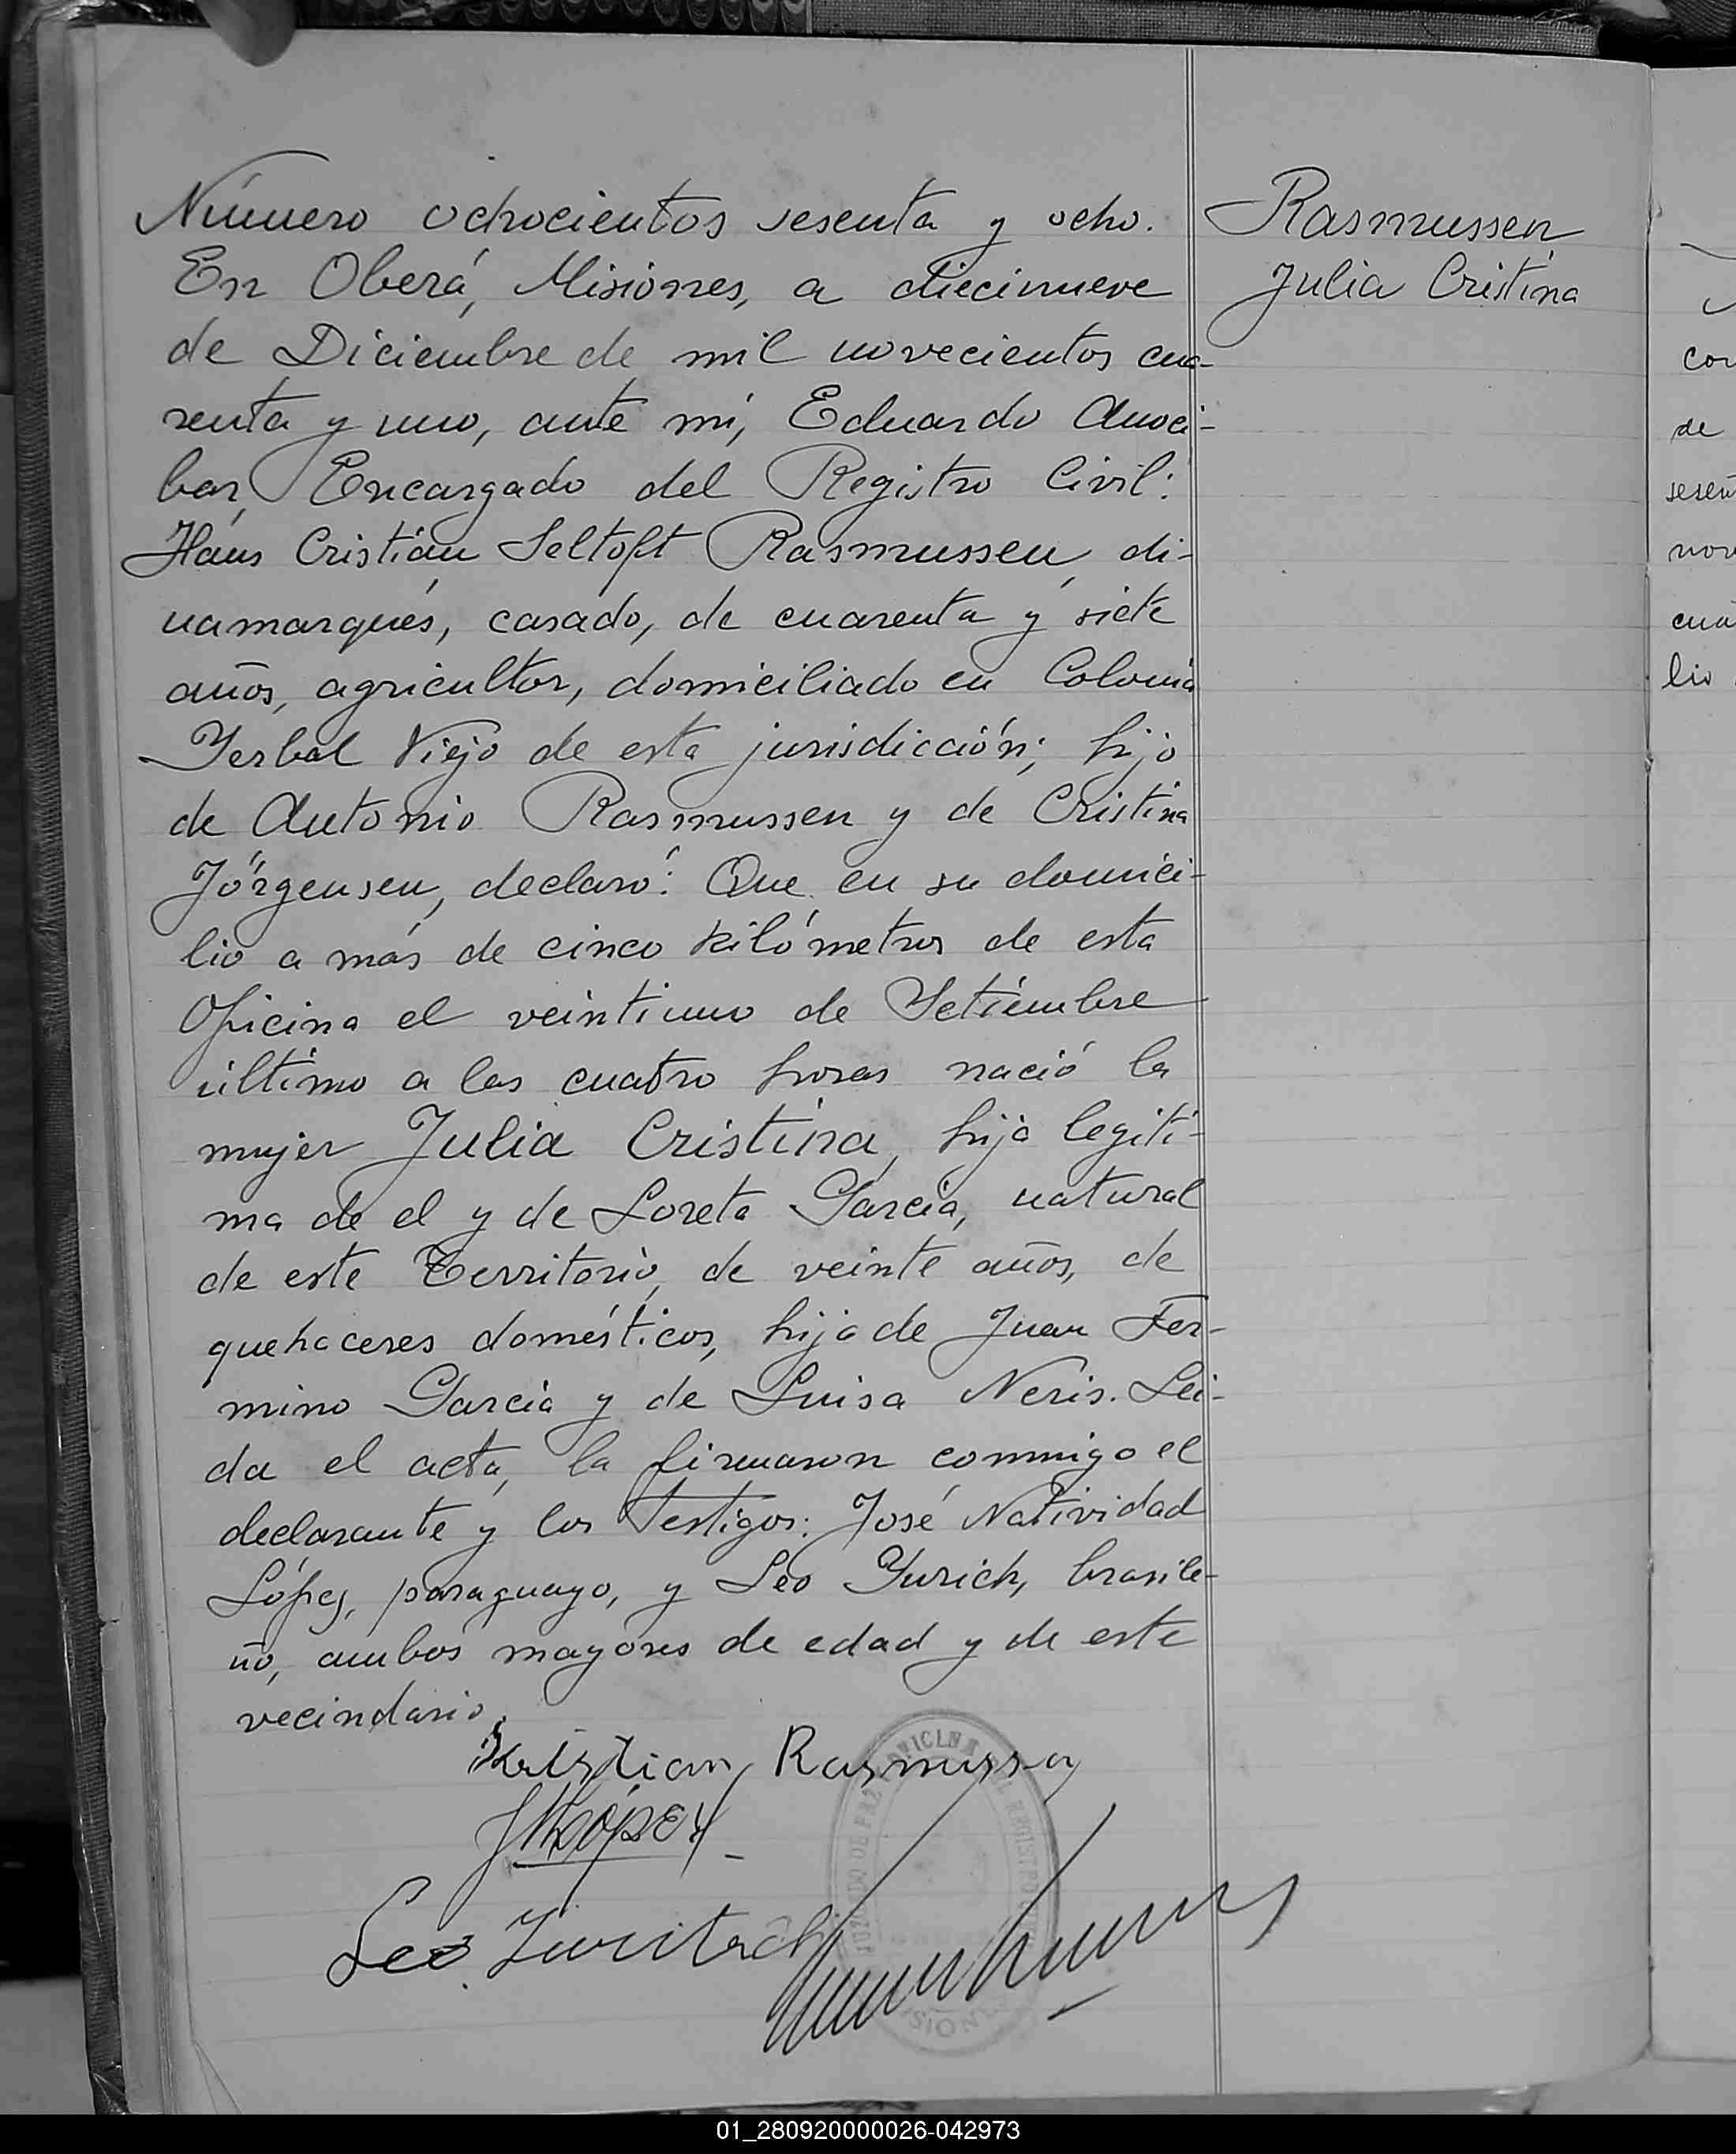 Número ochocientos sesenta y ocho.
En Oberá, Misiones, a diecinueve
de Diciembre de mil novecientos cua-
renta y uno, ante mí, Eduardo Anoci-
bar, Encargado del Registro Civil:
Hans Cristián Seltoft Rasmussen, di-
namarqués, casado, de cuarenta y siete
años, agricultor, domiciliado en Colonia
Yerbal Viejo de esta jurisdicción; hijo
de Antonio Rasmussen y de Cristina
Jörgensen, declaró: Que en su domici-
lio a más de cinco kilómetros de esta
Oficina el veintiuno de Setiembre
último a las cuatro horas nació la
mujer Julia Cristina, hija legíti-
ma de el y de Loreta García, natural
de este Territorio, de veinte años, de
quehaceres domésticos, hija de Juan Fer-
mino García y de Luisa Neris. Leí-
da el acta, la firmaron conmigo el
declarante y los Testigos: José Natividad
López, paraguayo, y Leo Yurich, brasile-
ño, ambos mayores de edad y de este
vecindario.
Rasmussen
Julia Cristina
Kristian Rasmussen
JNLópez
Leo Juritsch
con
de
nov
cua
lio
01_280920000026-042973